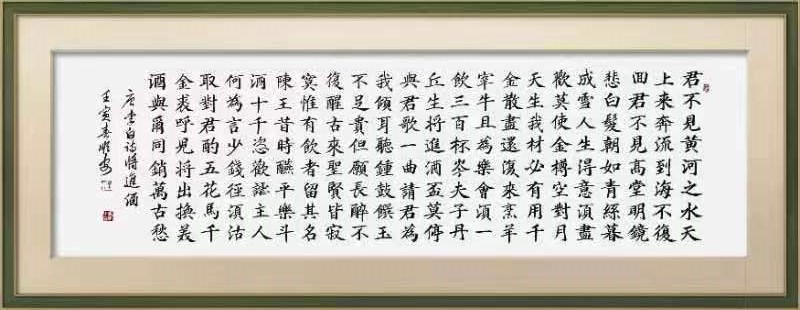 君不見黃河之水天
上來奔流到海不復
回君不見高堂明鏡
悲白髮朝如青絲暮
成雪人生得意須盡
歡莫使金樽空對月
天生我材必有用千
金散盡還復來烹羊
宰牛且為樂會須一
飲三百杯岑夫子丹
丘生將進酒盃莫停
與君歌一曲請君為
我傾耳聽鍾鼓饌玉
不足貴但願長醉不
復醒古來聖賢皆寂
寞惟有飲者留其名
陳王昔時讌平樂斗
酒十千恣歡謔主人
何為言少錢徑須沽
取對君酌五花馬千
金裘呼兒將出換美
酒與爾同銷萬古愁
唐李白詩將進酒
壬寅春